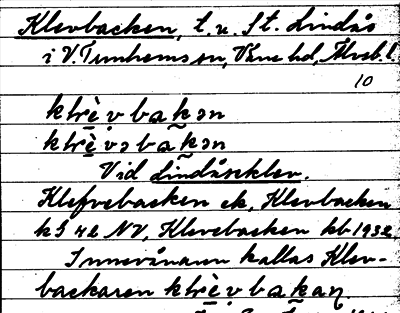 Klevbacken, t. u. St. Lindås
i V. Tunhems sn, Väne hd, Älvsb. l.
10
klrè̤vbakən
klrè̤vəbakən
Vid Lindåseklev.
Klefvebacken ek, Klevbacken
k§ 42 NV, Klevebacken kb 1932.
Innevånaren kallas Klev-
backaren klrè̤vbakaṉ